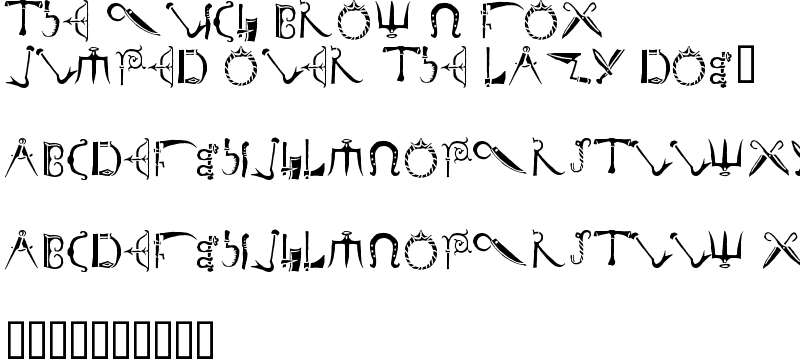 THE QUICK BROWN FOX
JUMPED OVER THE LAZY DOG
ABCDEFGHIJKLMNOPQRSTUVWX
ABCDEFGHIJKLMNOPQRSTUVW X